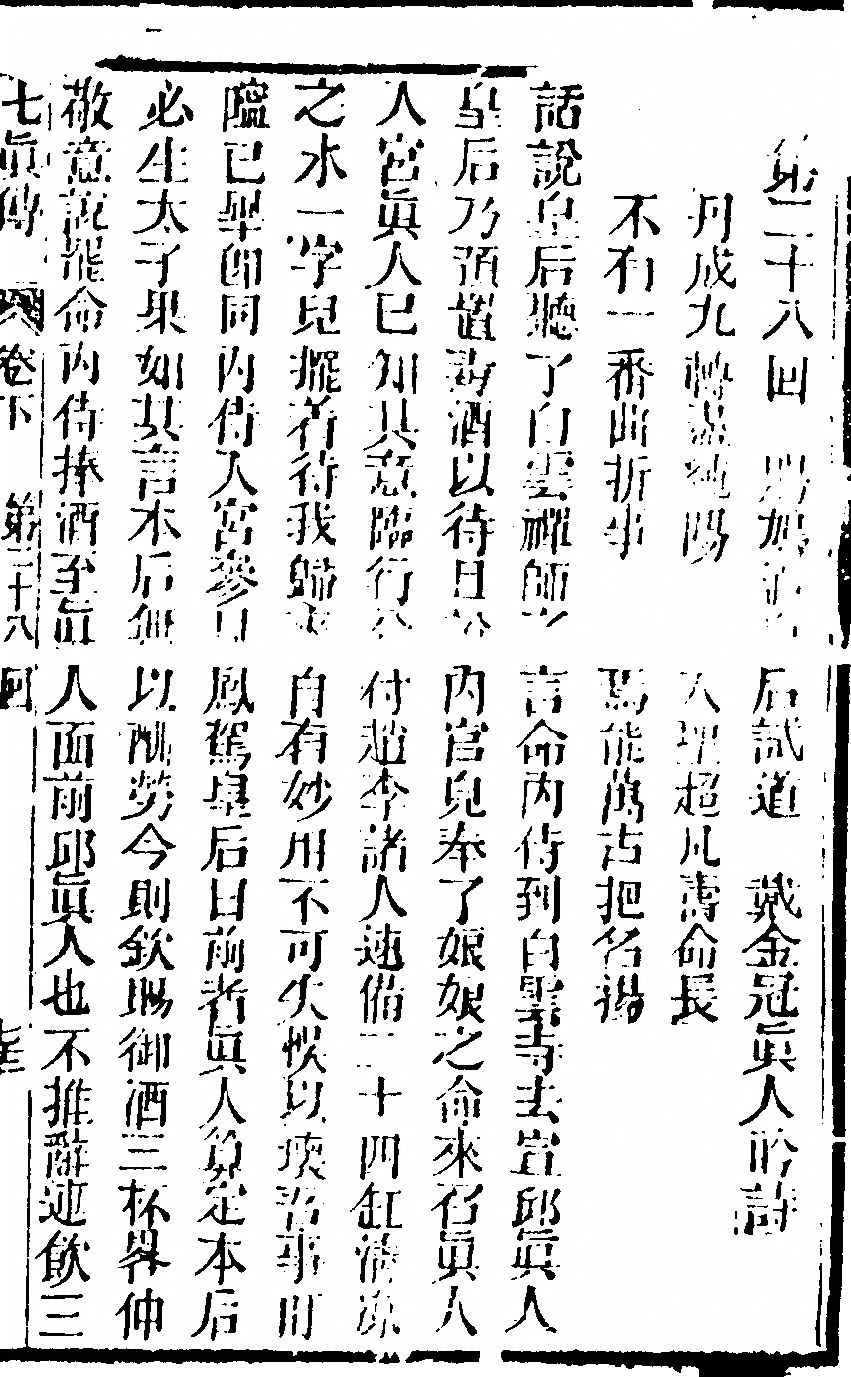 第二十八回　賜鴆酒皇后試道　戴金冠眞人吟詩
丹成九轉盡純陽　入聖超凡壽命長
不有一番曲折事　焉能萬古把名揚
話說皇后聽了白雲禪師之言命內侍到白雲寺去宣邱眞人
皇后乃預置毒酒以待且說內官兒奉了娘娘之命來召眞人
入宮眞人已知其意臨行吩付趙李諸人速備二十四缸淸凉
之水一字兒擺着待我歸來自有妙用不可失悞以壞吾事吩
囑已畢卽同內侍入宮參見鳳駕皇后曰前者眞人算定本后
必生太子果如其言本后無以酬勞今則欽賜御酒三杯畧伸
敬意說罷命內侍捧酒至眞人面前邱眞人也不推辭連飲三
七眞傳　卷下　第二十八回